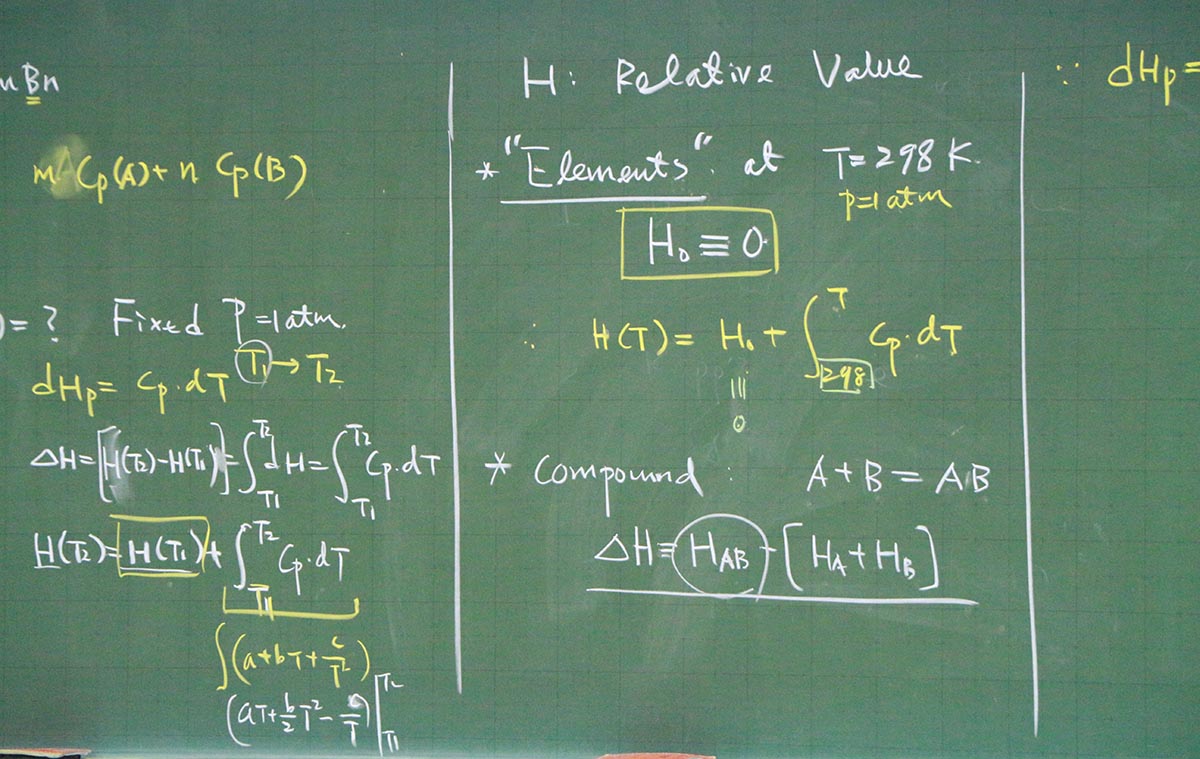 mBn
m Cp(A)+ n Cp(B)
)= ? Fixed P=1atm.
dHp= Cp.dT T1→T2
ΔH=[H(T2)-H(T1)]=∫T1T2 dH=∫T1T2 Cp.dT
H(T2)=H(T1)+∫T1T2 Cp.dT
∫(a+bT+c/T²)
(aT+b/2T²-c/T)|T1T2
H: Relative Value
* "Elements". at T=298K.
P=1atm
H₀≡0
∴ H(T)= H₀+∫298T Cp.dT
≡
0
* Compound: A+B=AB
ΔH≡HAB-[HA+HB]
∵ dHp=